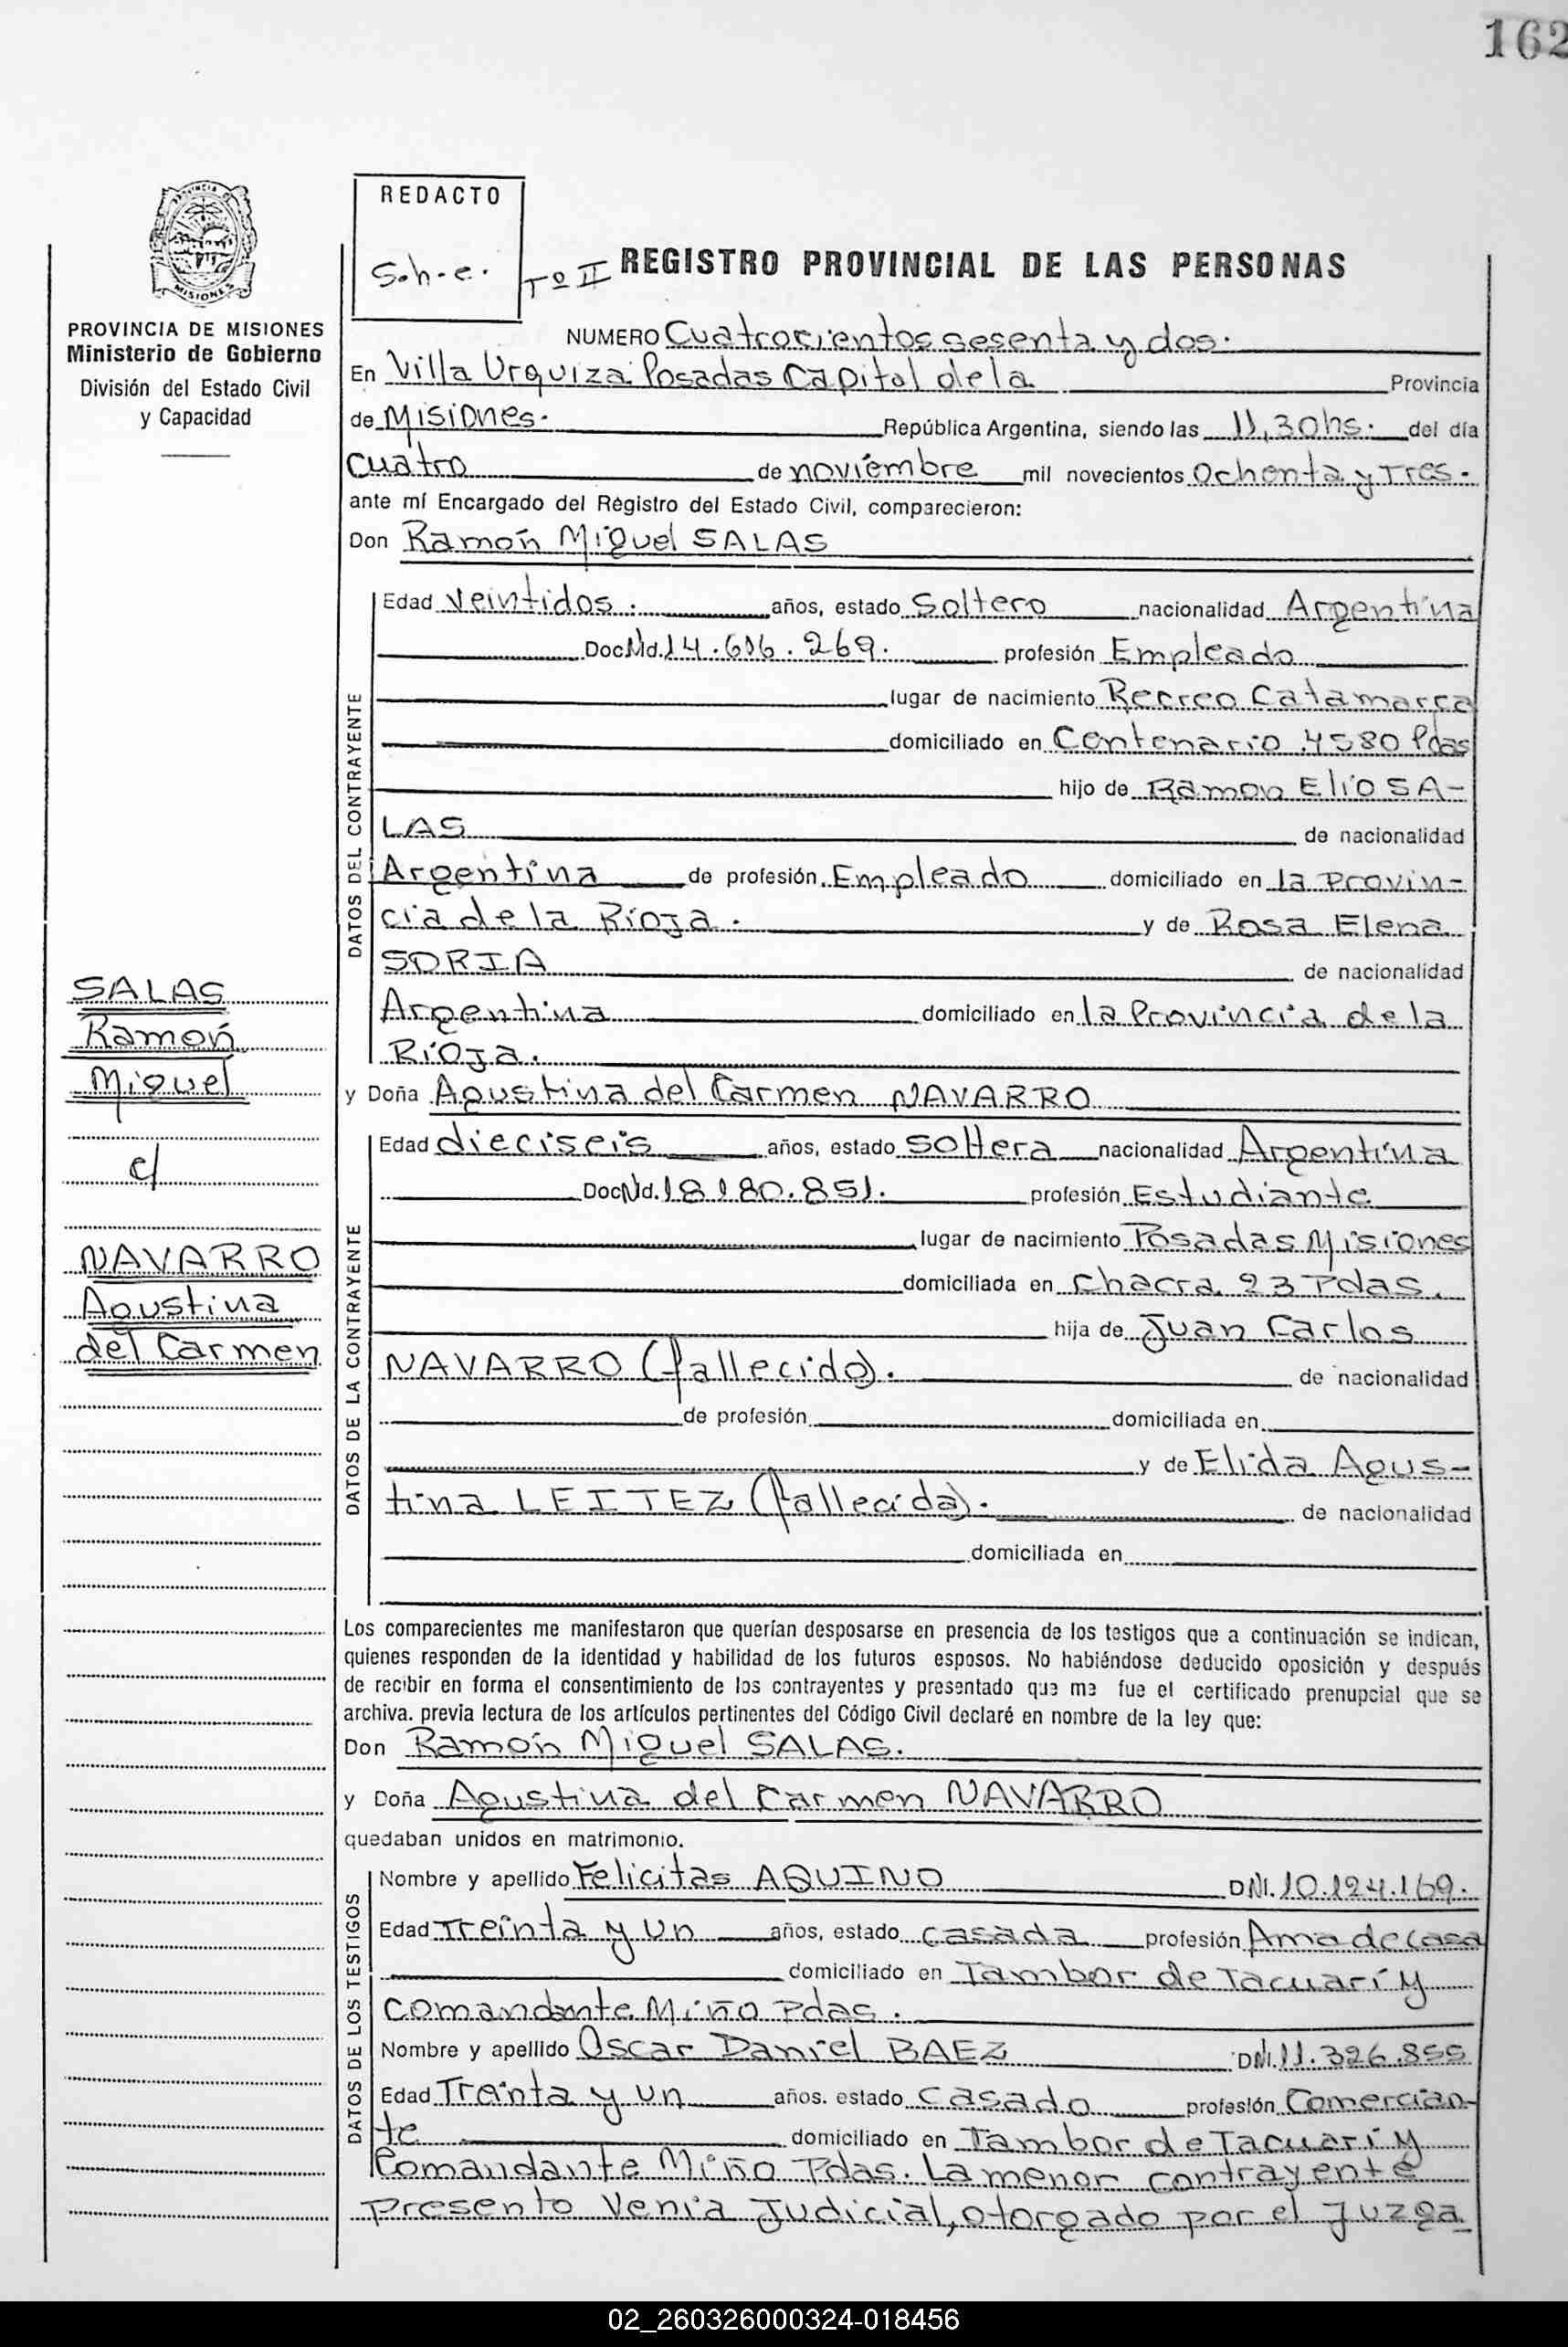 162
REDACTO
S.h.e.
Tº II
REGISTRO PROVINCIAL DE LAS PERSONAS
MISIONES
PROVINCIA DE MISIONES
Ministerio de Gobierno
División del Estado Civil
y Capacidad
NUMERO Cuatrocientos sesenta y dos.
En Villa Urquiza Posadas Capital de la Provincia
de Misiones. República Argentina, siendo las 11,30hs. del día
cuatro de noviembre mil novecientos Ochenta y Tres.
ante mí Encargado del Registro del Estado Civil, comparecieron:
Don Ramón Miguel SALAS
DATOS DEL CONTRAYENTE
Edad Veintidos. años, estado Soltero nacionalidad Argentina
Doc Nd. 14.616.269. profesión Empleado
lugar de nacimiento Recreo Catamarca
domiciliado en Centenario 4580 Pdas
hijo de Ramon Elio SA-
LAS de nacionalidad
Argentina de profesión Empleado domiciliado en la Provin-
cia de la Rioja. y de Rosa Elena
SORIA de nacionalidad
Argentina domiciliado en la Provincia de la
Rioja.
SALAS
Ramón
Miguel
c/
NAVARRO
Agustina
del Carmen
y Doña Agustina del Carmen NAVARRO
DATOS DE LA CONTRAYENTE
Edad dieciseis años, estado soltera nacionalidad Argentina
Doc Nd. 18.180.851. profesión Estudiante
lugar de nacimiento Posadas Misiones
domiciliada en Chacra 23 Pdas.
hija de Juan Carlos
NAVARRO (fallecido). de nacionalidad
de profesión domiciliada en
y de Elida Agus-
tina LEITEZ (fallecida). de nacionalidad
domiciliada en
Los comparecientes me manifestaron que querían desposarse en presencia de los testigos que a continuación se indican,
quienes responden de la identidad y habilidad de los futuros esposos. No habiéndose deducido oposición y después
de recibir en forma el consentimiento de los contrayentes y presentado que me fue el certificado prenupcial que se
archiva. previa lectura de los artículos pertinentes del Código Civil declaré en nombre de la ley que:
Don Ramón Miguel SALAS.
y Doña Agustina del Carmen NAVARRO
quedaban unidos en matrimonio.
DATOS DE LOS TESTIGOS
Nombre y apellido Felicitas AQUINO DNI. 10.124.169.
Edad Treinta y un años, estado casada profesión Ama de casa
domiciliado en Tambor de Tacuarí y
comandante Miño Pdas.
Nombre y apellido Oscar Daniel BAEZ DNI. 11.326.855
Edad Treinta y un años. estado casado profesión Comercian-
te domiciliado en Tambor de Tacuarí y
Comandante Miño Pdas. La menor contrayente
presento Venia Judicial, otorgado por el Juzga
02_260326000324-018456